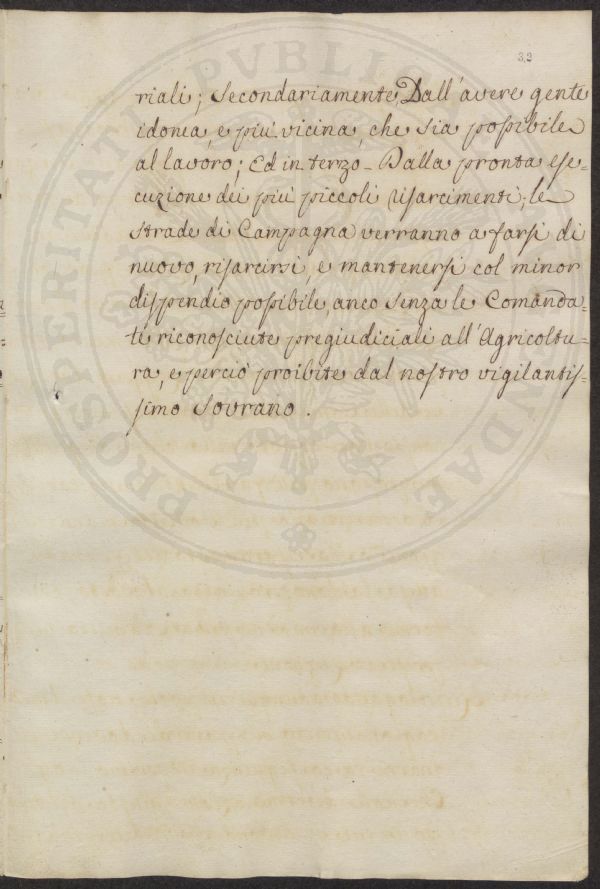 32
riali; Secondariamente Dall'avere gente
idonea, e più vicina, che sia possibile
al lavoro; Ed in terzo- Dalla pronta ese-
cuzione dei più piccoli risarcimenti; le
strade di Campagna verranno a farsi di
nuovo, risarcirsi e mantenersi col minor
dispendio possibile, anco senza le Comanda-
te riconosciute pregiudiciali all'Agricoltu-
ra, e perciò proibite dal nostro vigilantis-
simo Sovrano.
PROSPERITATI PUBLICAE AUGENDAE